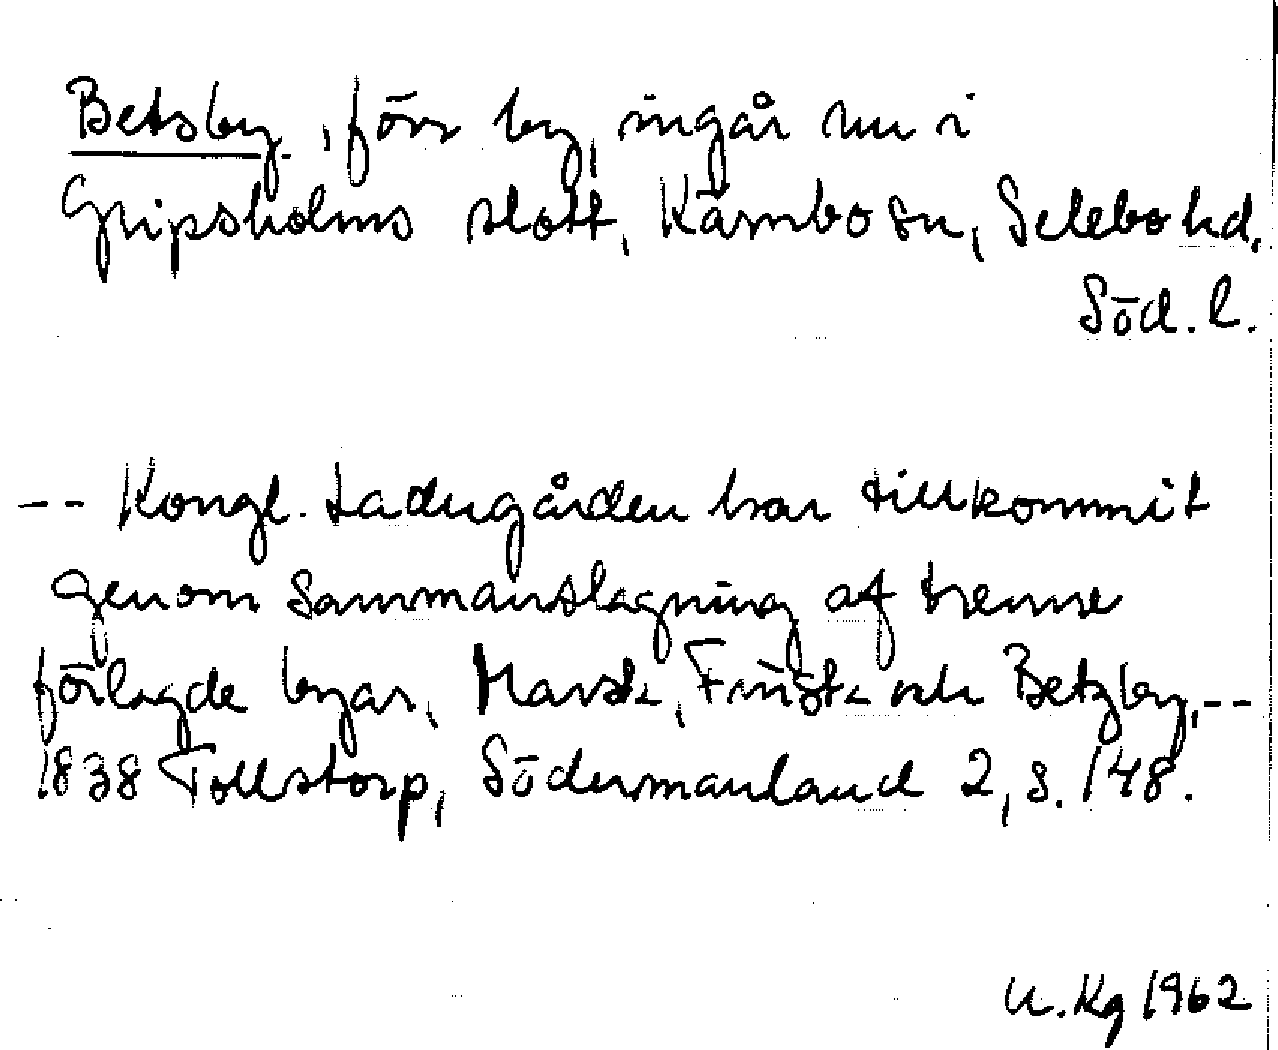 Betsby, förr by, ingår nu i
Gripsholms slott, Kärnbo sn, Selebo hd,
Söd. l.
-- Kongl. Ladugården har tillkommit
genom Sammanslagning af trenne
förlagde byar, Harsta, Finsta och Betzby, --
1838 Tollstorp, Södermanland 2, s. 148.
U. Kg 1962